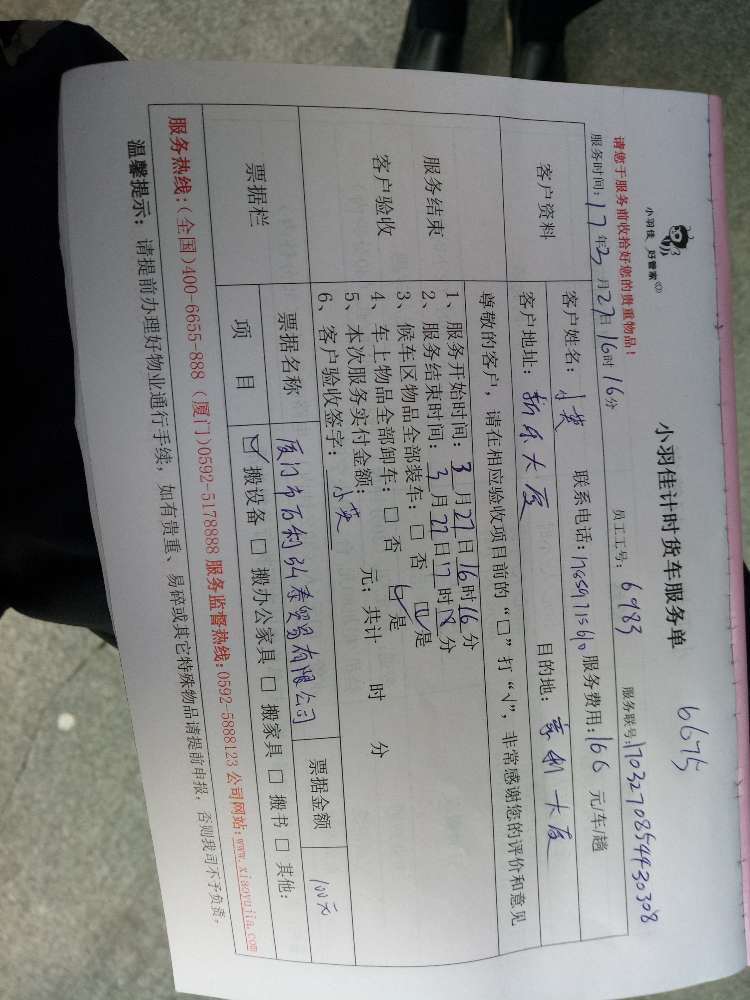 小羽佳 好管家
小羽佳计时货车服务单
6675
请您于服务前收拾好您的贵重物品!
员工工号: 6983
服务联号: 17032708544430308
服务时间: 17年3月27日16时16分
客户资料
客户姓名: 小英 联系电话: 服务费用: 166 元/车/趟
客户地址: 新乐大厦 目的地: 大厦
尊敬的客户, 请在相应验收项目前的“□”打“√”, 非常感谢您的评价和意见
服务结束
客户验收
1、服务开始时间: 3月27日16时16分
2、服务结束时间: 3月27日17时 分
3、候车区物品全部装车: □ 否 ☑是
4、车上物品全部卸车: □ 否 ☑是
5、本次服务实付金额: 元; 共计 时 分
6、客户验收签字: 小英
票据栏
票据名称 厦门市百利弘泰贸易有限公司 票据金额 100元
项 目 ☑ 搬设备 □ 搬办公家具 □ 搬家具 □ 搬书 □ 其他:
服务热线: (全国)400-6655-888 (厦门)0592-5178888 服务监督热线: 0592-5888123 公司网站: www.xiaoyujia.com
温馨提示: 请提前办理好物业通行手续, 如有贵重、易碎或其它特殊物品请提前申报, 否则我司不予负责。